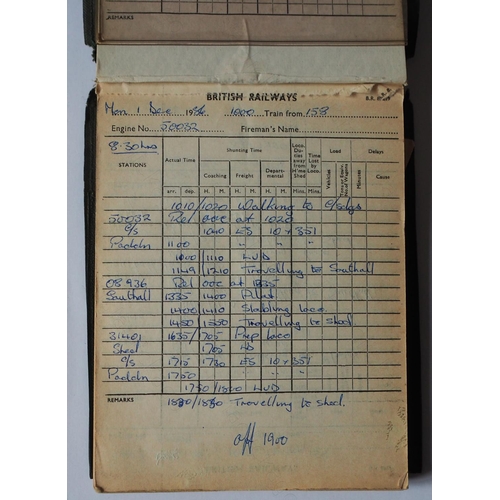 REMARKS
BRITISH RAILWAYS
Mon 1 Dec 1986 1000 Train from 158
Engine No. 50032 Fireman's Name
8.30 hrs
STATIONS Actual Time Shunting Time Loco. Duties away from H'me Shed Time Lost by Loco. Load Delays
Coaching Freight Departmental Vehicles Minutes Cause
arr. dep. H. M. H. M. H. M. Mins. Mins.
1010/1020 Walking to c/sdgs
50032 Rel OOC at 1020
c/s 1040 ES 10 x 351
Paddn 1100 " "
1000 1110 LVD
1149 1210 Travelling to Southall
08936 Rel OOC at 1335
Southall 1335 1400 Pilot
1400 1410 Stabling loco
1450 1550 Travelling to shed
31401 1635/1705 Prep loco
Shed 1705 LD
c/s 1715 1730 ES 10 x 351
Paddn 1750 " "
1750/1800 LVD
REMARKS 1830/1850 Travelling to shed.
off 1900